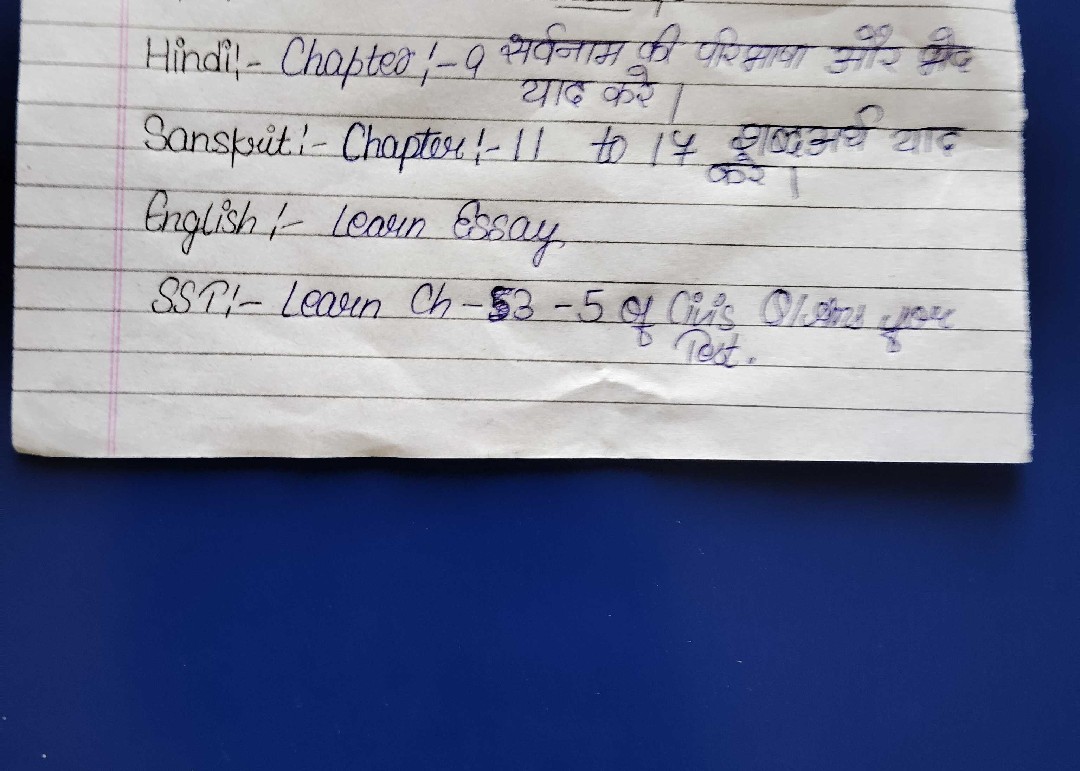 Hindi:- Chapter:-9 सर्वनाम की परिभाषा और भेद
याद करे।
Sanskrit:- Chapter:- 11 to 17 शब्दअर्थ याद
करे।
English:- Learn Essay
SST:- Learn Ch-3 -5 of Civis your
Test.